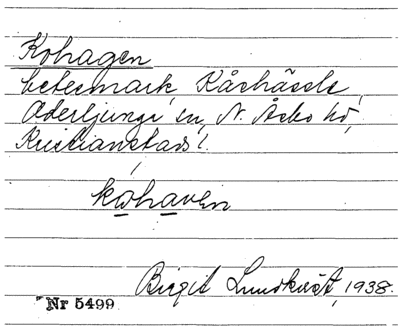 Kohagen
betesmark, Kårhässle,
Oderljunga sn, N. Åsbo hd,
Kristianstads l.
kohaven
Birgit Lundkvist, 1938.
Nr 5499